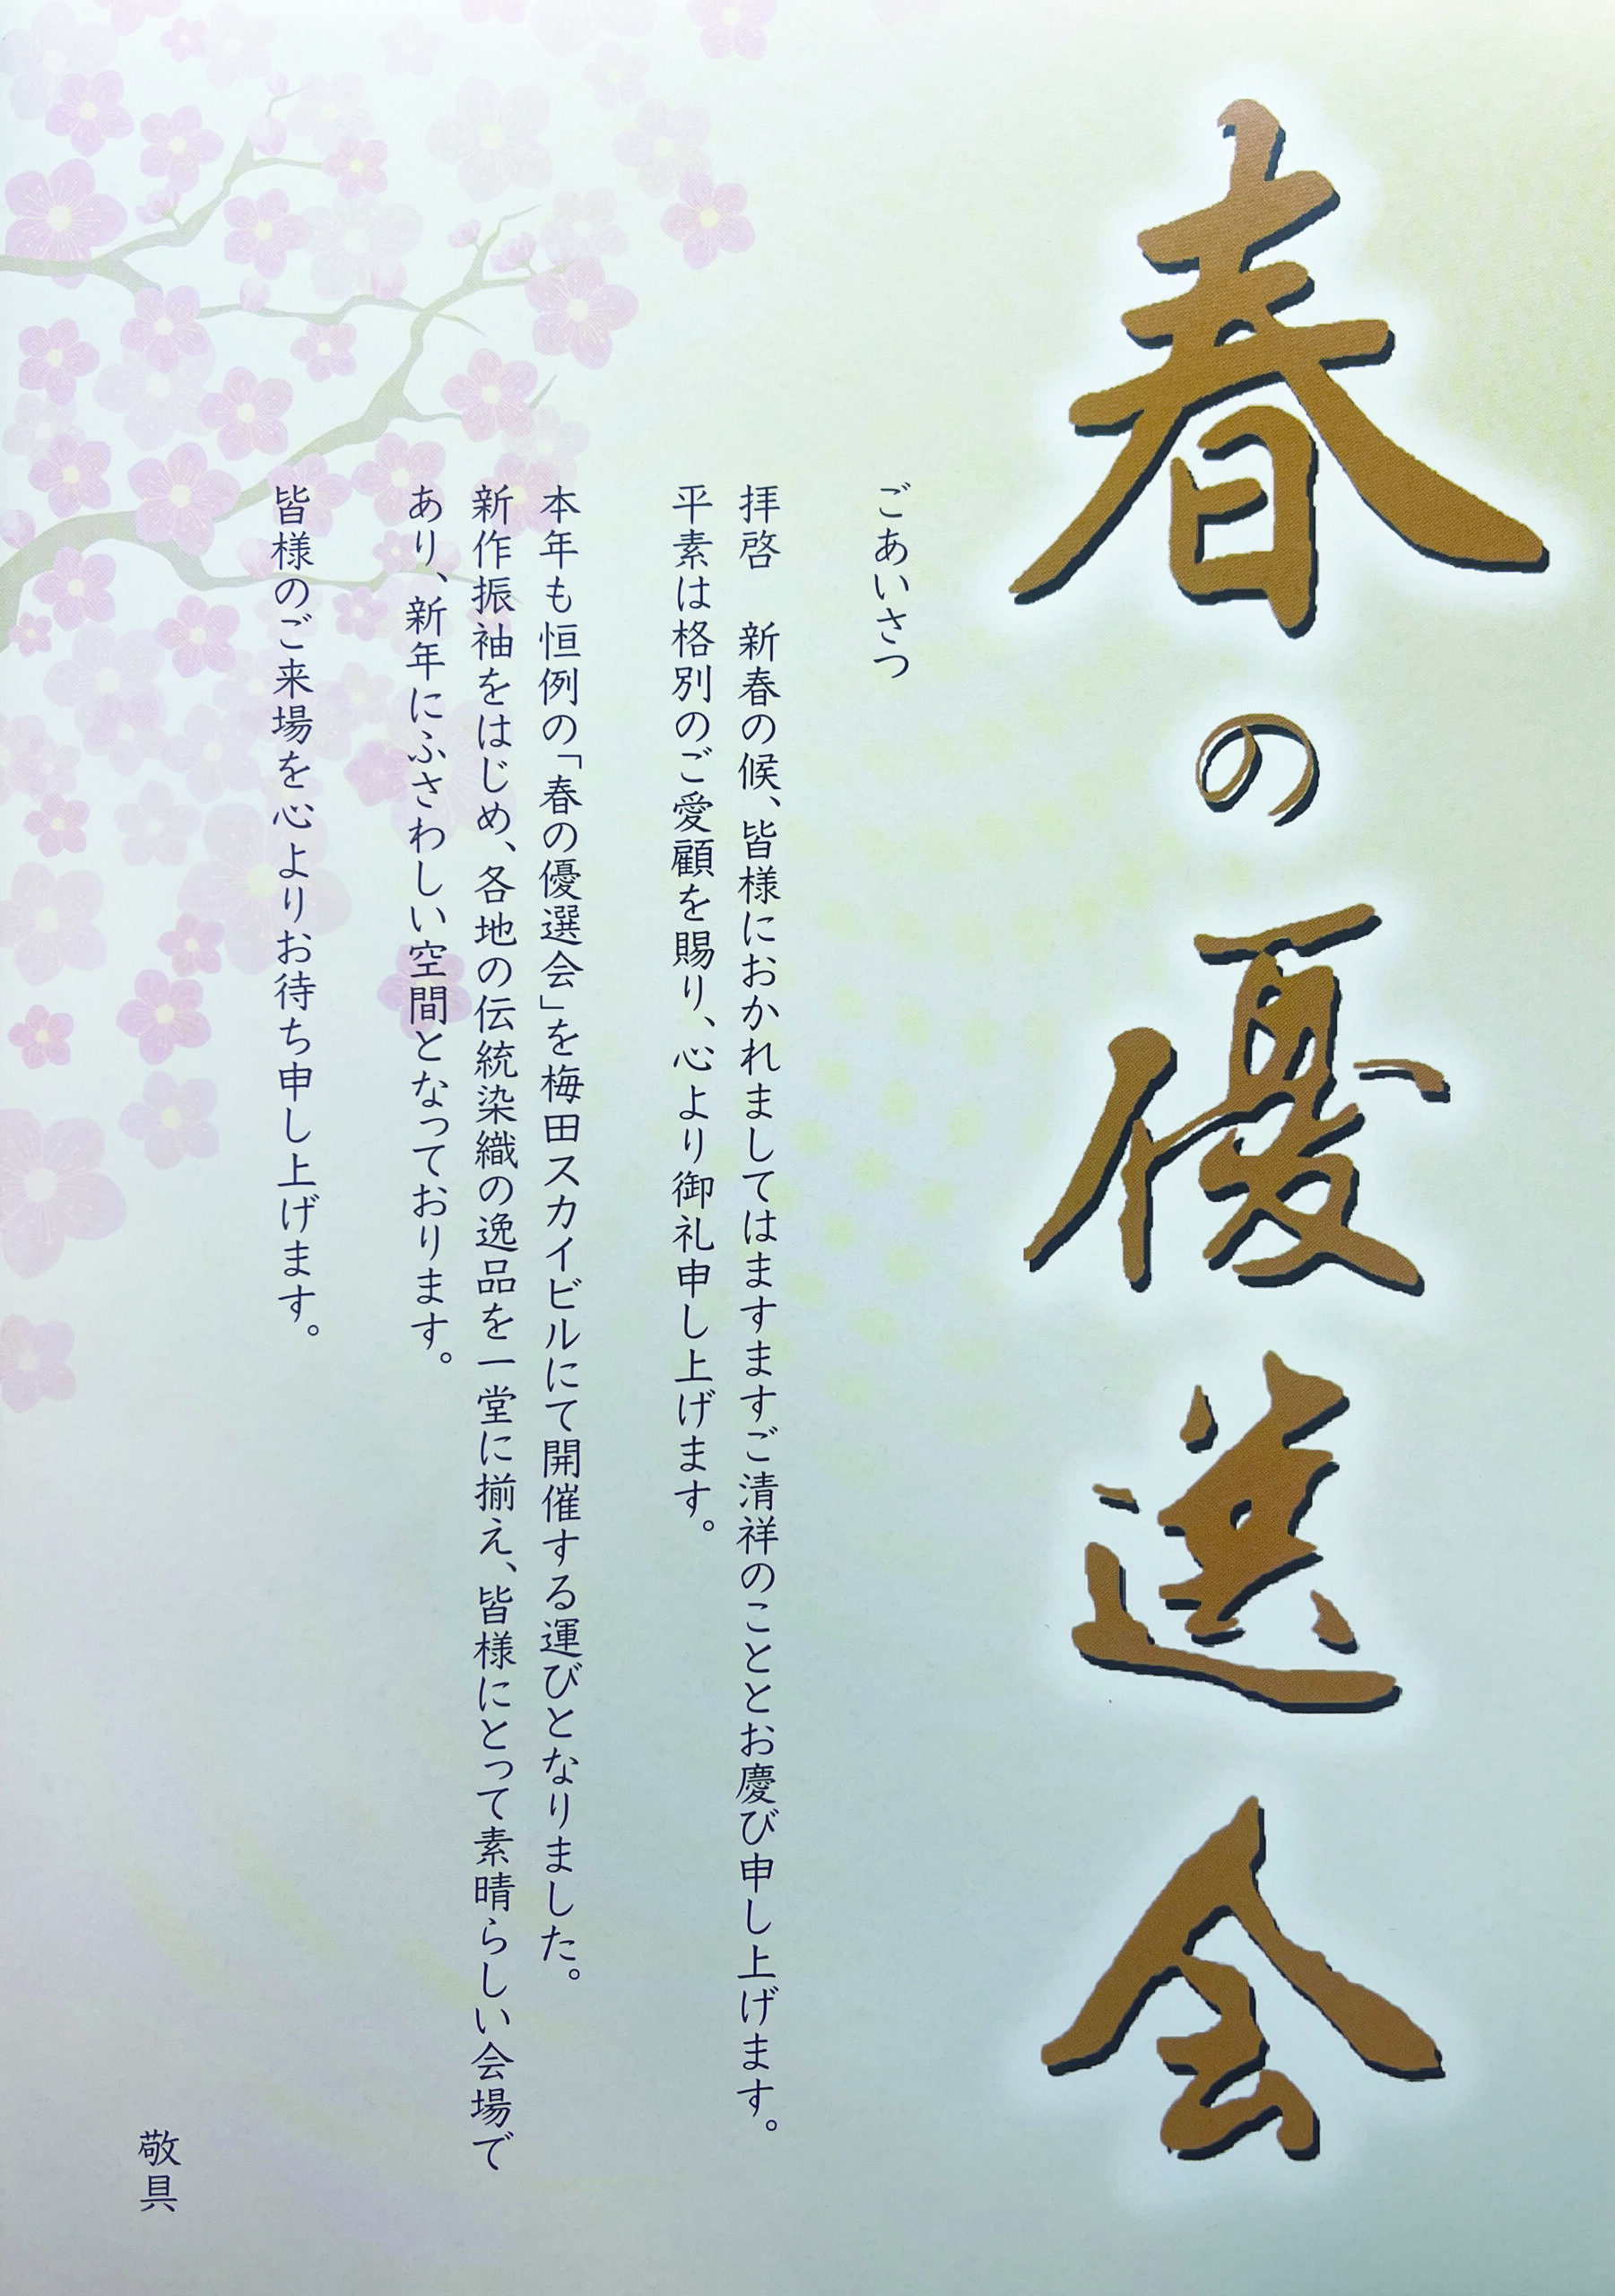 春の優選会
ごあいさつ
拝啓　新春の候、皆様におかれましてはますますご清祥のこととお慶び申し上げます。
平素は格別のご愛顧を賜り、心より御礼申し上げます。
本年も恒例の「春の優選会」を梅田スカイビルにて開催する運びとなりました。
新作振袖をはじめ、各地の伝統染織の逸品を一堂に揃え、皆様にとって素晴らしい会場で
あり、新年にふさわしい空間となっております。
皆様のご来場を心よりお待ち申し上げます。
敬具